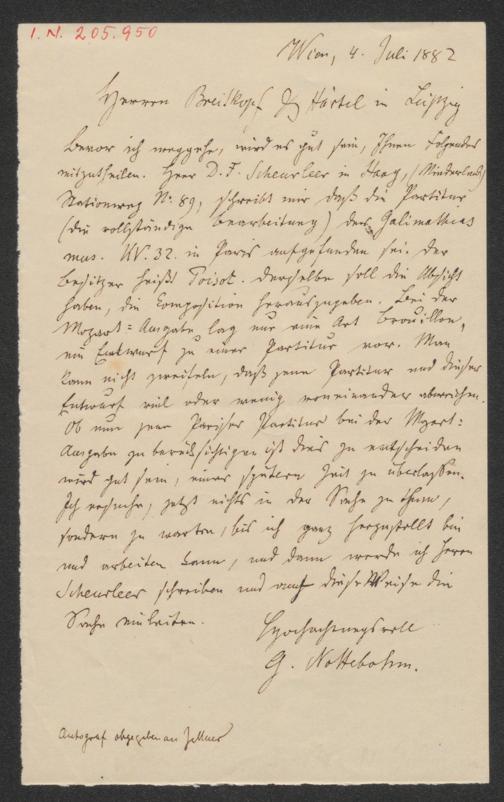 I. N. 205.950
Wien, 4. Juli 1882
Herren Breitkopf & Härtel in Leipzig
Bevor ich weggehe, wird es gut sein, Ihnen Folgendes
mitzutheilen. Herr D. F. Scheurleer in Haag, (Niederland)
Stationweg No. 89, schreibt mir daß die Partitur
(die vollständige Bearbeitung) des Galimathias
mus. KV. 32. in Paris aufgefunden sei. Der
Besitzer heißt Poisot. Derselbe soll die Absicht
haben, die Composition herauszugeben. Bei der
Mozart-Ausgabe lag nur eine Art Brouillon,
ein Entwurf zu einer Partitur vor. Man
kann nicht zweifeln, daß jene Partitur und dieser
Entwurf viel oder wenig voneinander abweichen.
Ob nun jene Pariser Partitur bei der Mozart-
Ausgabe zu berücksichtigen ist dies zu entscheiden
wird gut sein, einer spätern Zeit zu überlassen.
Ich ersuche, jetzt nichts in der Sache zu thun,
sondern zu warten, bis ich ganz hergestellt bin
und arbeiten kann, und dann werde ich Herrn
Scheurleer schreiben und auf diese Weise die
Sache einleiten.
Hochachtungsvoll
G. Nottebohm.
Autograf abgegeben an Zellner